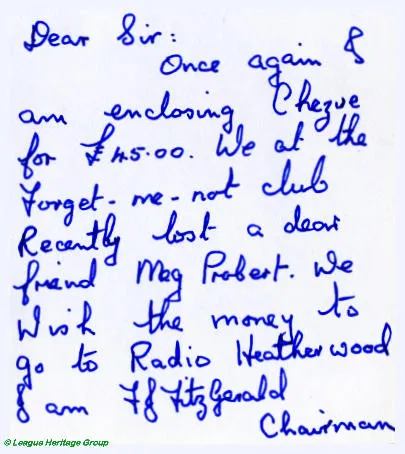 Dear Sir:
Once again I
am enclosing Cheque
for £45.00. We at the
Forget-me-not club
Recently lost a dear
friend Meg Probert. We
Wish the money to
go to Radio Heatherwood
I am FJ FitzGerald
Chairman
© League Heritage Group